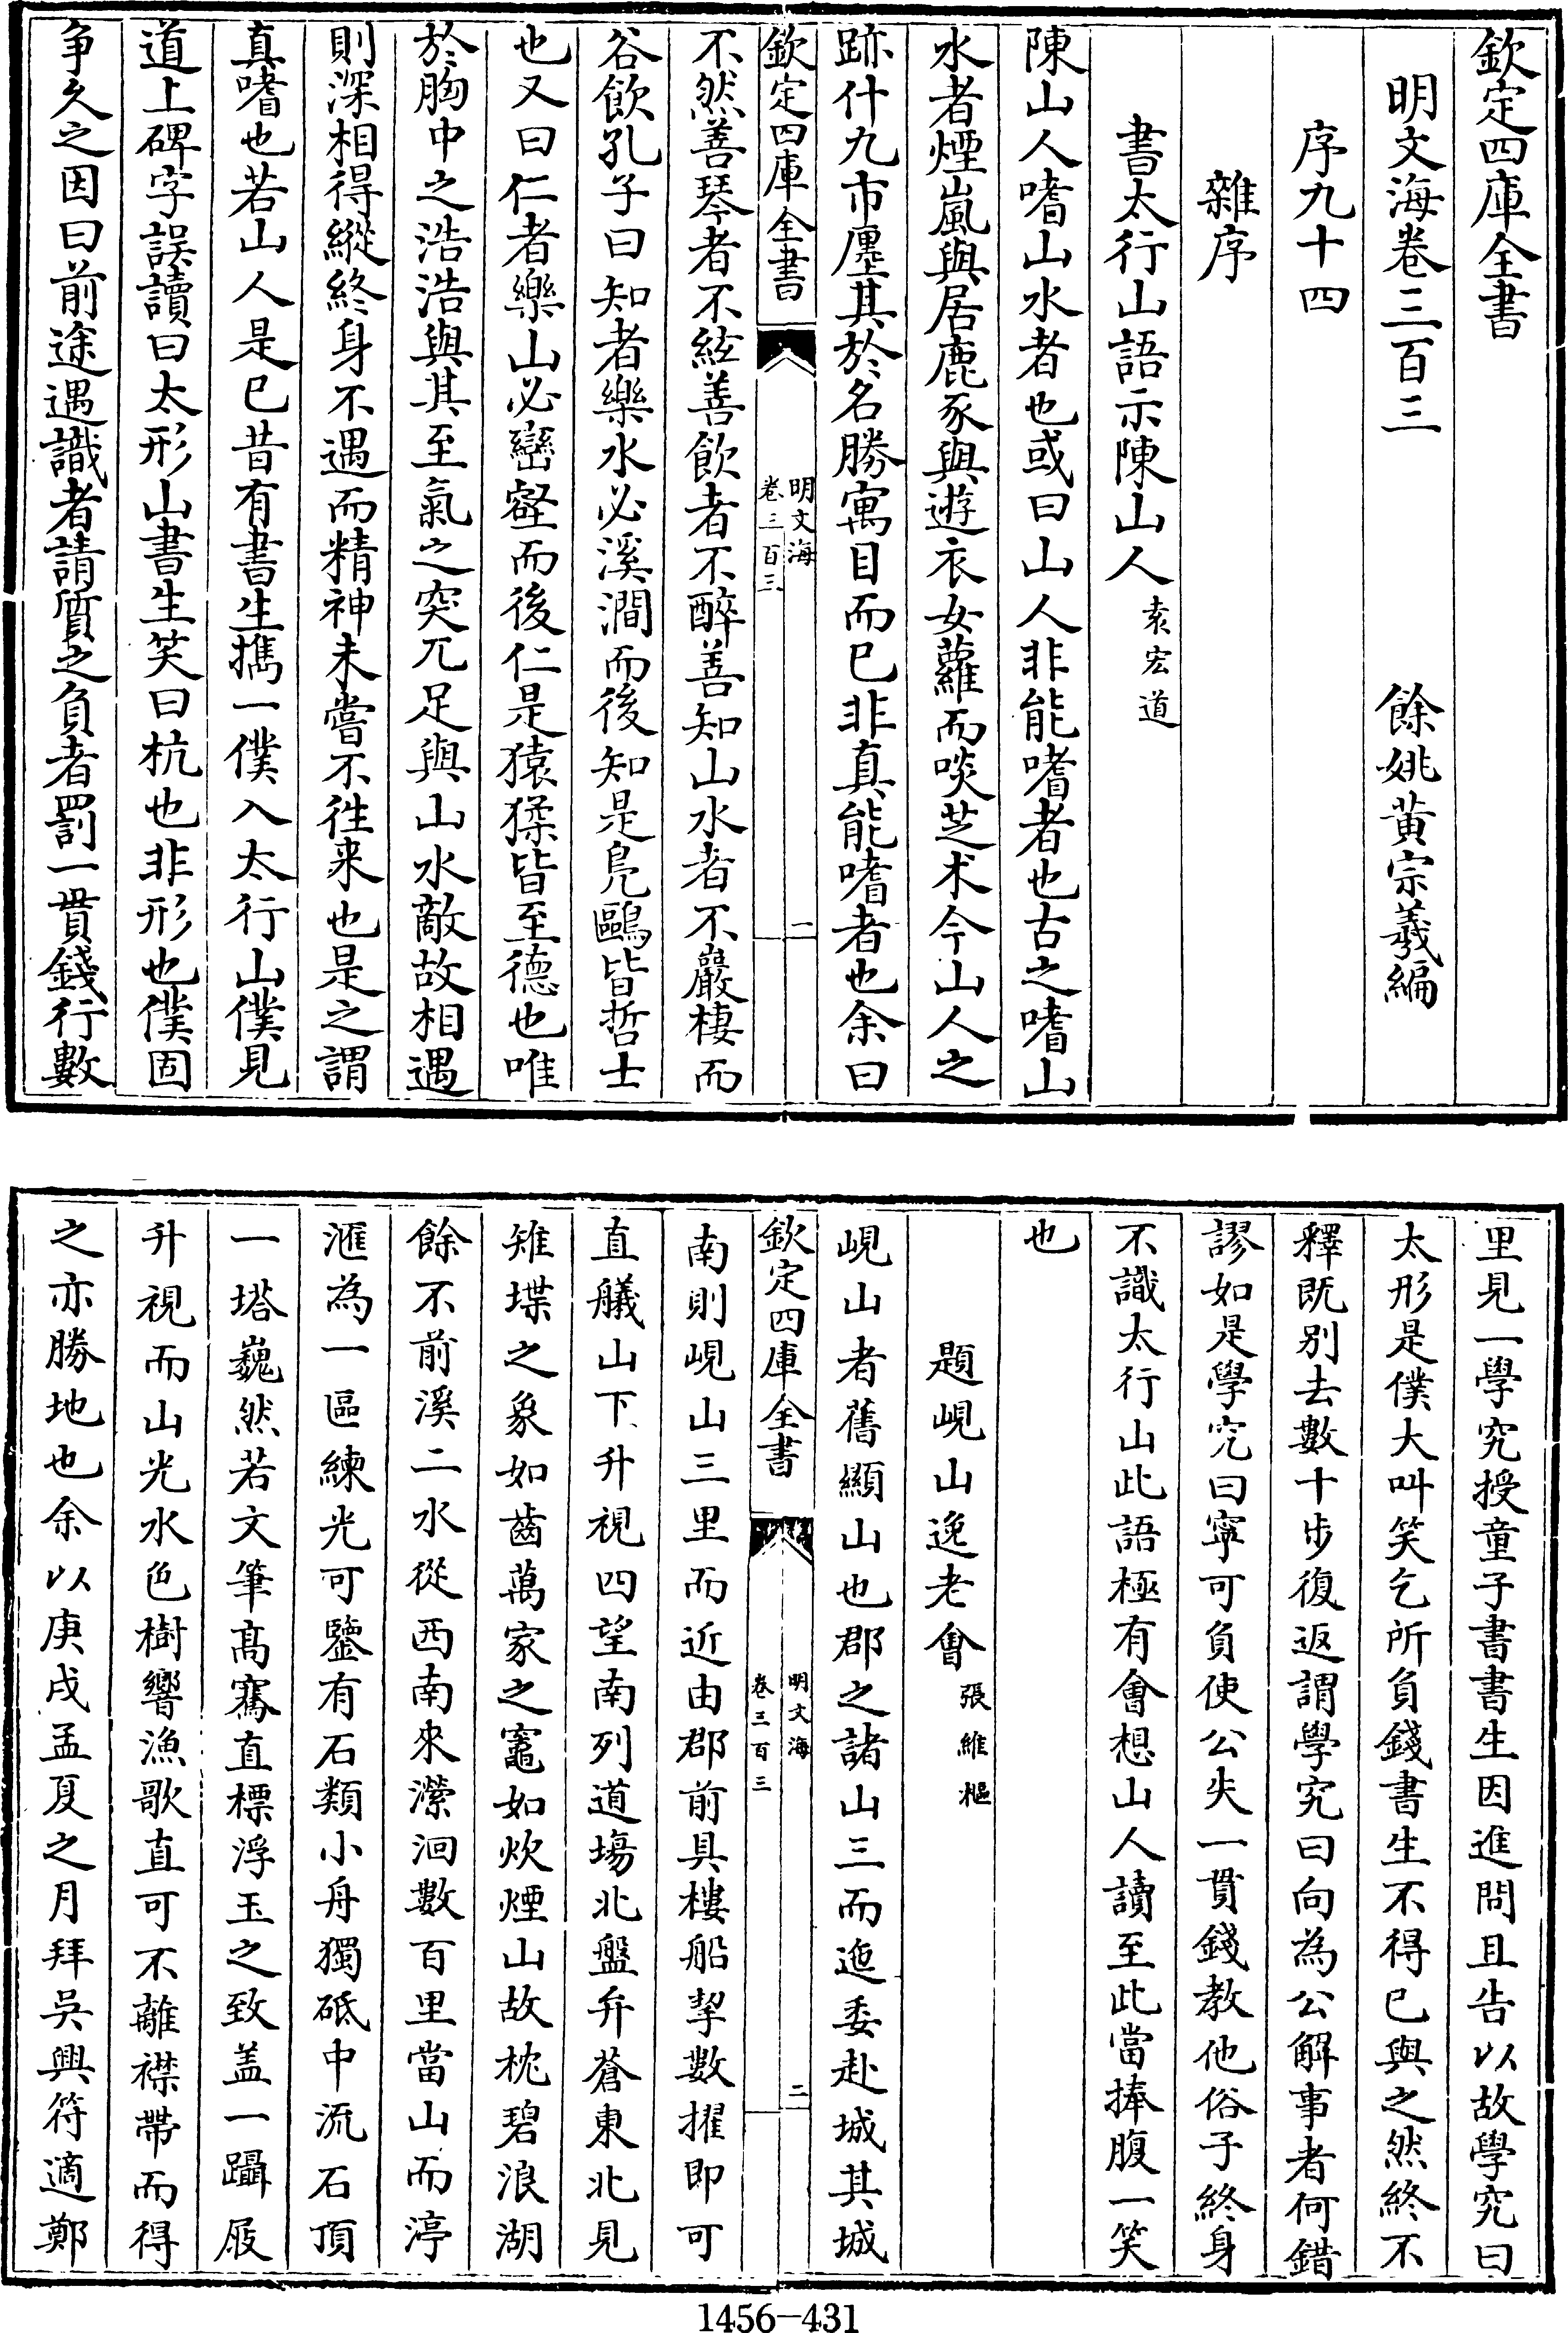 欽定四庫全書
明文海卷三百三
餘姚黄宗羲編
序九十四
雜序
書太行山語示陳山人袁宏道
陳山人嗜山水者也或曰山人非能嗜者也古之嗜山
水者煙嵐與居鹿豕與遊衣女蘿而啖芝术今山人之
跡什九市廛其於名勝寓目而已非真能嗜者也余曰
欽定四庫全書
明文海
卷三百三
一
不然善琴者不絃善飲者不醉善知山水者不巖棲而
谷飲孔子曰知者樂水必溪澗而後知是鳬鷗皆哲士
也又曰仁者樂山必巒壑而後仁是猿猱皆至德也唯
於胸中之浩浩與其至氣之突兀足與山水敵故相遇
則深相得縱終身不遇而精神未嘗不徃来也是之謂
真嗜也若山人是已昔有書生擕一僕入太行山僕見
道上碑字誤讀曰太形山書生笑曰杭也非形也僕固
争久之因曰前途遇識者請質之負者罰一貫錢行數
里見一學究授童子書書生因進問且告以故學究曰
太形是僕大呌笑乞所負錢書生不得已與之然終不
釋既别去數十步復返謂學究曰向為公解事者何錯
謬如是學究曰寧可負使公失一貫錢教他俗子終身
不識太行山此語極有會想山人讀至此當捧腹一笑
也
題峴山逸老會張維樞
峴山者舊顯山也郡之諸山三而迤委赴城其城
欽定四庫全書
明文海
卷三百三
二
南則峴山三里而近由郡前具樓船挐數擢即可
直艤山下升視四望南列道塲北盤弁蒼東北見
雉堞之象如齒萬家之竈如炊煙山故枕碧浪湖
餘不前溪二水從西南來瀠洄數百里當山而渟
滙為一區練光可鑒有石類小舟獨砥中流石頂
一塔巍然若文筆高騫直標浮玉之致盖一躡屐
升視而山光水色樹響漁歌直可不離襟帶而得
之亦勝地也余以庚戌孟夏之月拜吳興符適鄭
1456-431